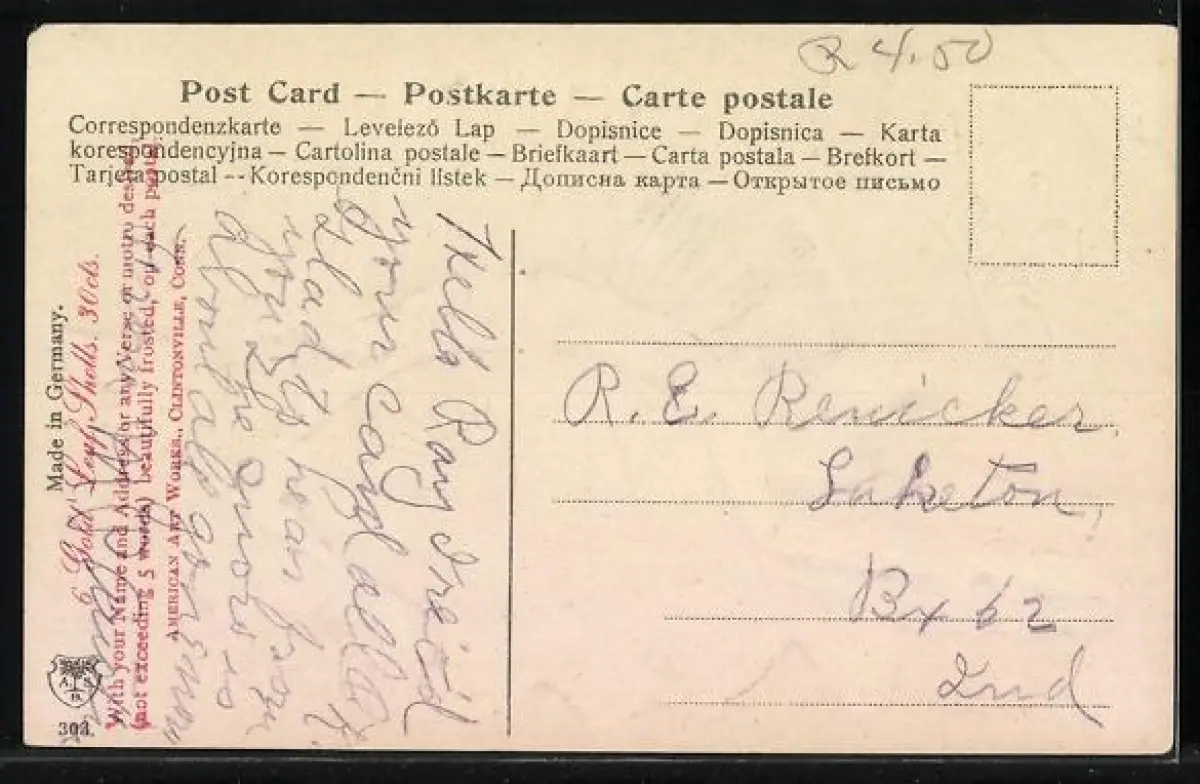 R 4.50
Post Card — Postkarte — Carte postale
Correspondenzkarte — Levelező Lap — Dopisnice — Dopisnica — Karta
korespondencyjna — Cartolina postale — Briefkaart — Carta postala — Brefkort —
Tarjeta postal -- Korespondenčni listek — Дописна карта — Открытое письмо
Hello Ray Irecid
your card all OK
glad to hear from
you the snow is
about all gon
R. E. Renicker,
Laketon,
Bx 62
Ind
Made in Germany.
6 Gold Leaf Shells. 30cts.
With your Name and Address or any Verse or motto
(not exceeding 5 words) beautifully frosted, on each postal.
American Art Works, Clintonville, Conn.
A S
B
303.